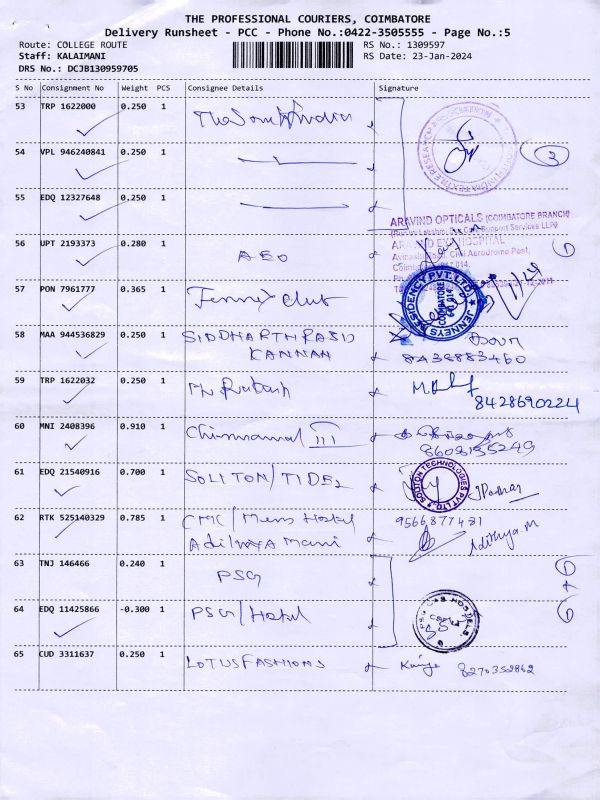 THE PROFESSIONAL COURIERS, COIMBATORE
Delivery Runsheet - PCC - Phone No.:0422-3505555 - Page No.:5
Route: COLLEGE ROUTE
RS No.: 1309597
Staff: KALAIMANI
RS Date: 23-Jan-2024
DRS No.: DCJB130959705
S No Consignment No Weight PCS Consignee Details Signature
53 TRP 1622000 0.250 1
54 VPL 946240841 0.250 1
3
55 EDQ 12327648 0.250 1
ARAVIND OPTICALS (COIMBATORE BRANCH)
56 UPT 2193373 0.280 1 AEO
ARAVIND EYE HOSPITAL
Avinashi Road, Civil Aerodrome Post,
57 PON 7961777 0.365 1 Jennys club
JENNEYS RESIDENCY PVT. LTD.
COIMBATORE
641 014
58 MAA 944536829 0.250 1 SIDDHARTH RASU
KANNAN 8438883460
59 TRP 1622032 0.250 1 Prakash
8428690224
60 MNI 2408396 0.910 1 III
8608155249
61 EDQ 21540916 0.700 1 SOLITON/TIDEL
SOLITON TECHNOLOGIES PVT LTD
62 RTK 525140329 0.785 1 CMC/Mens Hostel 9566877481
Adithyaa Mani Adithya.M
63 TNJ 146466 0.240 1 PSG 1
64 EDQ 11425866 -0.300 1 PSG/Hostel 1
PSG CAS HOSTELS
65 CUD 3311637 0.250 1 LOTUS FASHIONS 8270352862